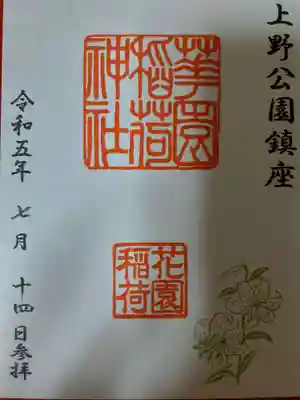 上野公園鎮座
華園
稲荷
神社
花園
稲荷
令和五年 七月 十四日参拝